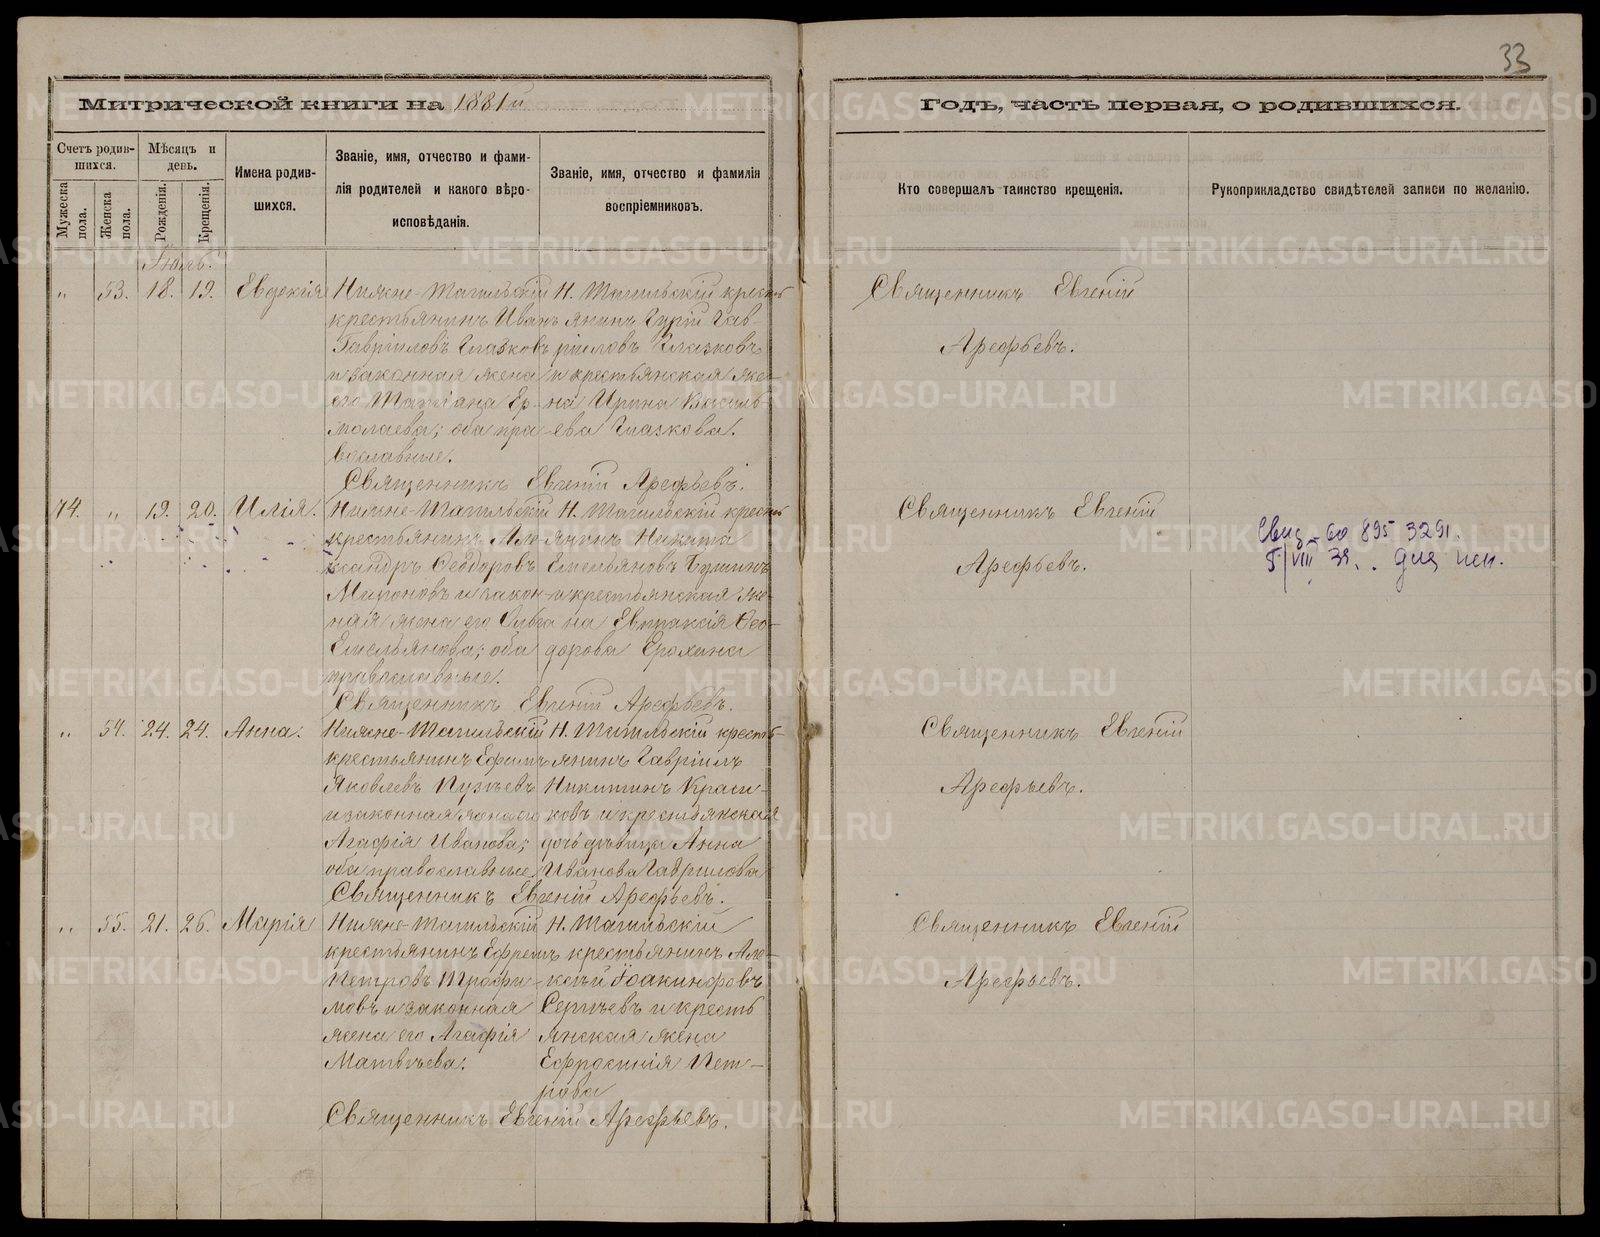 33
Митрической книги на 1881й
Годъ, часть первая, о родившихся.
Счетъ родившихся.
Мужеска пола.
Женска пола.
Мѣсяцъ и день.
Рожденія.
Крещенія.
Имена родившихся.
Званіе, имя, отчество и фамилія родителей и какого вѣроисповѣданія.
Званіе, имя, отчество и фамилія воспріемниковъ.
Кто совершалъ таинство крещенія.
Рукоприкладство свидѣтелей записи по желанію.
Іюль.
" 53. 18. 19. Евдокія
Нижне-Тагильскій
крестьянинъ Иванъ
Гавріиловъ Глазковъ
и законная жена
его Татіана Ер-
молаева; оба пра-
вославные.
Н. Тагильскій кресть
янинъ Гурій Гав-
ріиловъ Глазковъ
и крестьянская же-
на Ирина Василь-
ева Глазкова.
Священникъ Евгеній Арефьевъ.
Священникъ Евгеній
Арефьевъ.
74. " 19. 20. Илія.
Нижне-Тагильскій
крестьянинъ Але-
ксандръ Ѳеодоровъ
Мироновъ и закон-
ная жена его Ольга
Емельянова; оба
православные.
Н. Тагильскій кресть
янинъ Никита
Емельяновъ
и крестьянская же-
на Евпраксія Ѳео-
дорова Ерохина
Священникъ Евгеній Арефьевъ.
Священникъ Евгеній
Арефьевъ.
895 3291.
VIII
" 54. 24. 24. Анна.
Нижне-Тагильскій
крестьянинъ Ефимъ
Яковлевъ Пузѣевъ
и законная жена его
Агафія Иванова;
оба православные.
Н. Тагильскій кресть
янинъ Гавріилъ
Никитинъ Краси-
ковъ и крестьянская
дочь дѣвица Анна
Иванова Гаврилова
Священникъ Евгеній Арефьевъ.
Священникъ Евгеній
Арефьевъ.
" 55. 21. 26. Марія
Нижне-Тагильскій
крестьянинъ Ефремъ
Петровъ Трофи-
мовъ и законная
жена его Агафія
Матвѣева.
Н. Тагильскій
крестьянинъ Але-
ксѣй Іоакинфовъ
Сергѣевъ и кресть
янская жена
Ефросинія Пет-
рова
Священникъ Евгеній Арефьевъ.
Священникъ Евгеній
Арефьевъ.
METRIKI.GASO-URAL.RU